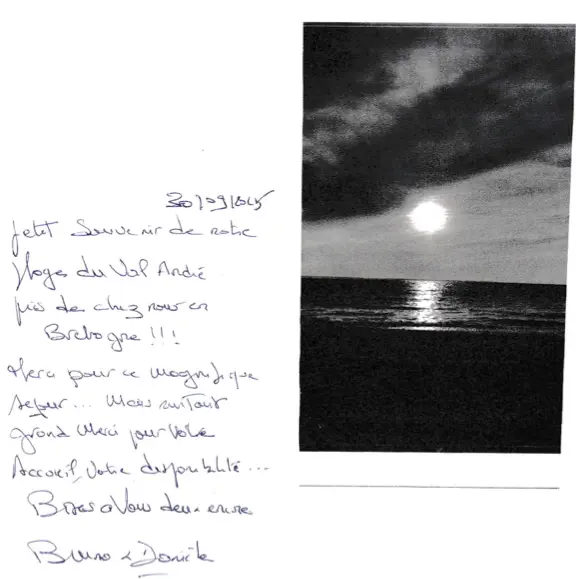 30/09/2015
Petit Souvenir de notre
Plages du Val André
près de chez nous en
Bretagne !!!
Merci pour ce magnifique
séjour... Mais surtout
grand Merci pour Votre
Accueil, Votre disponibilité...
Bises a Vous deux encore
Bruno & Danièle